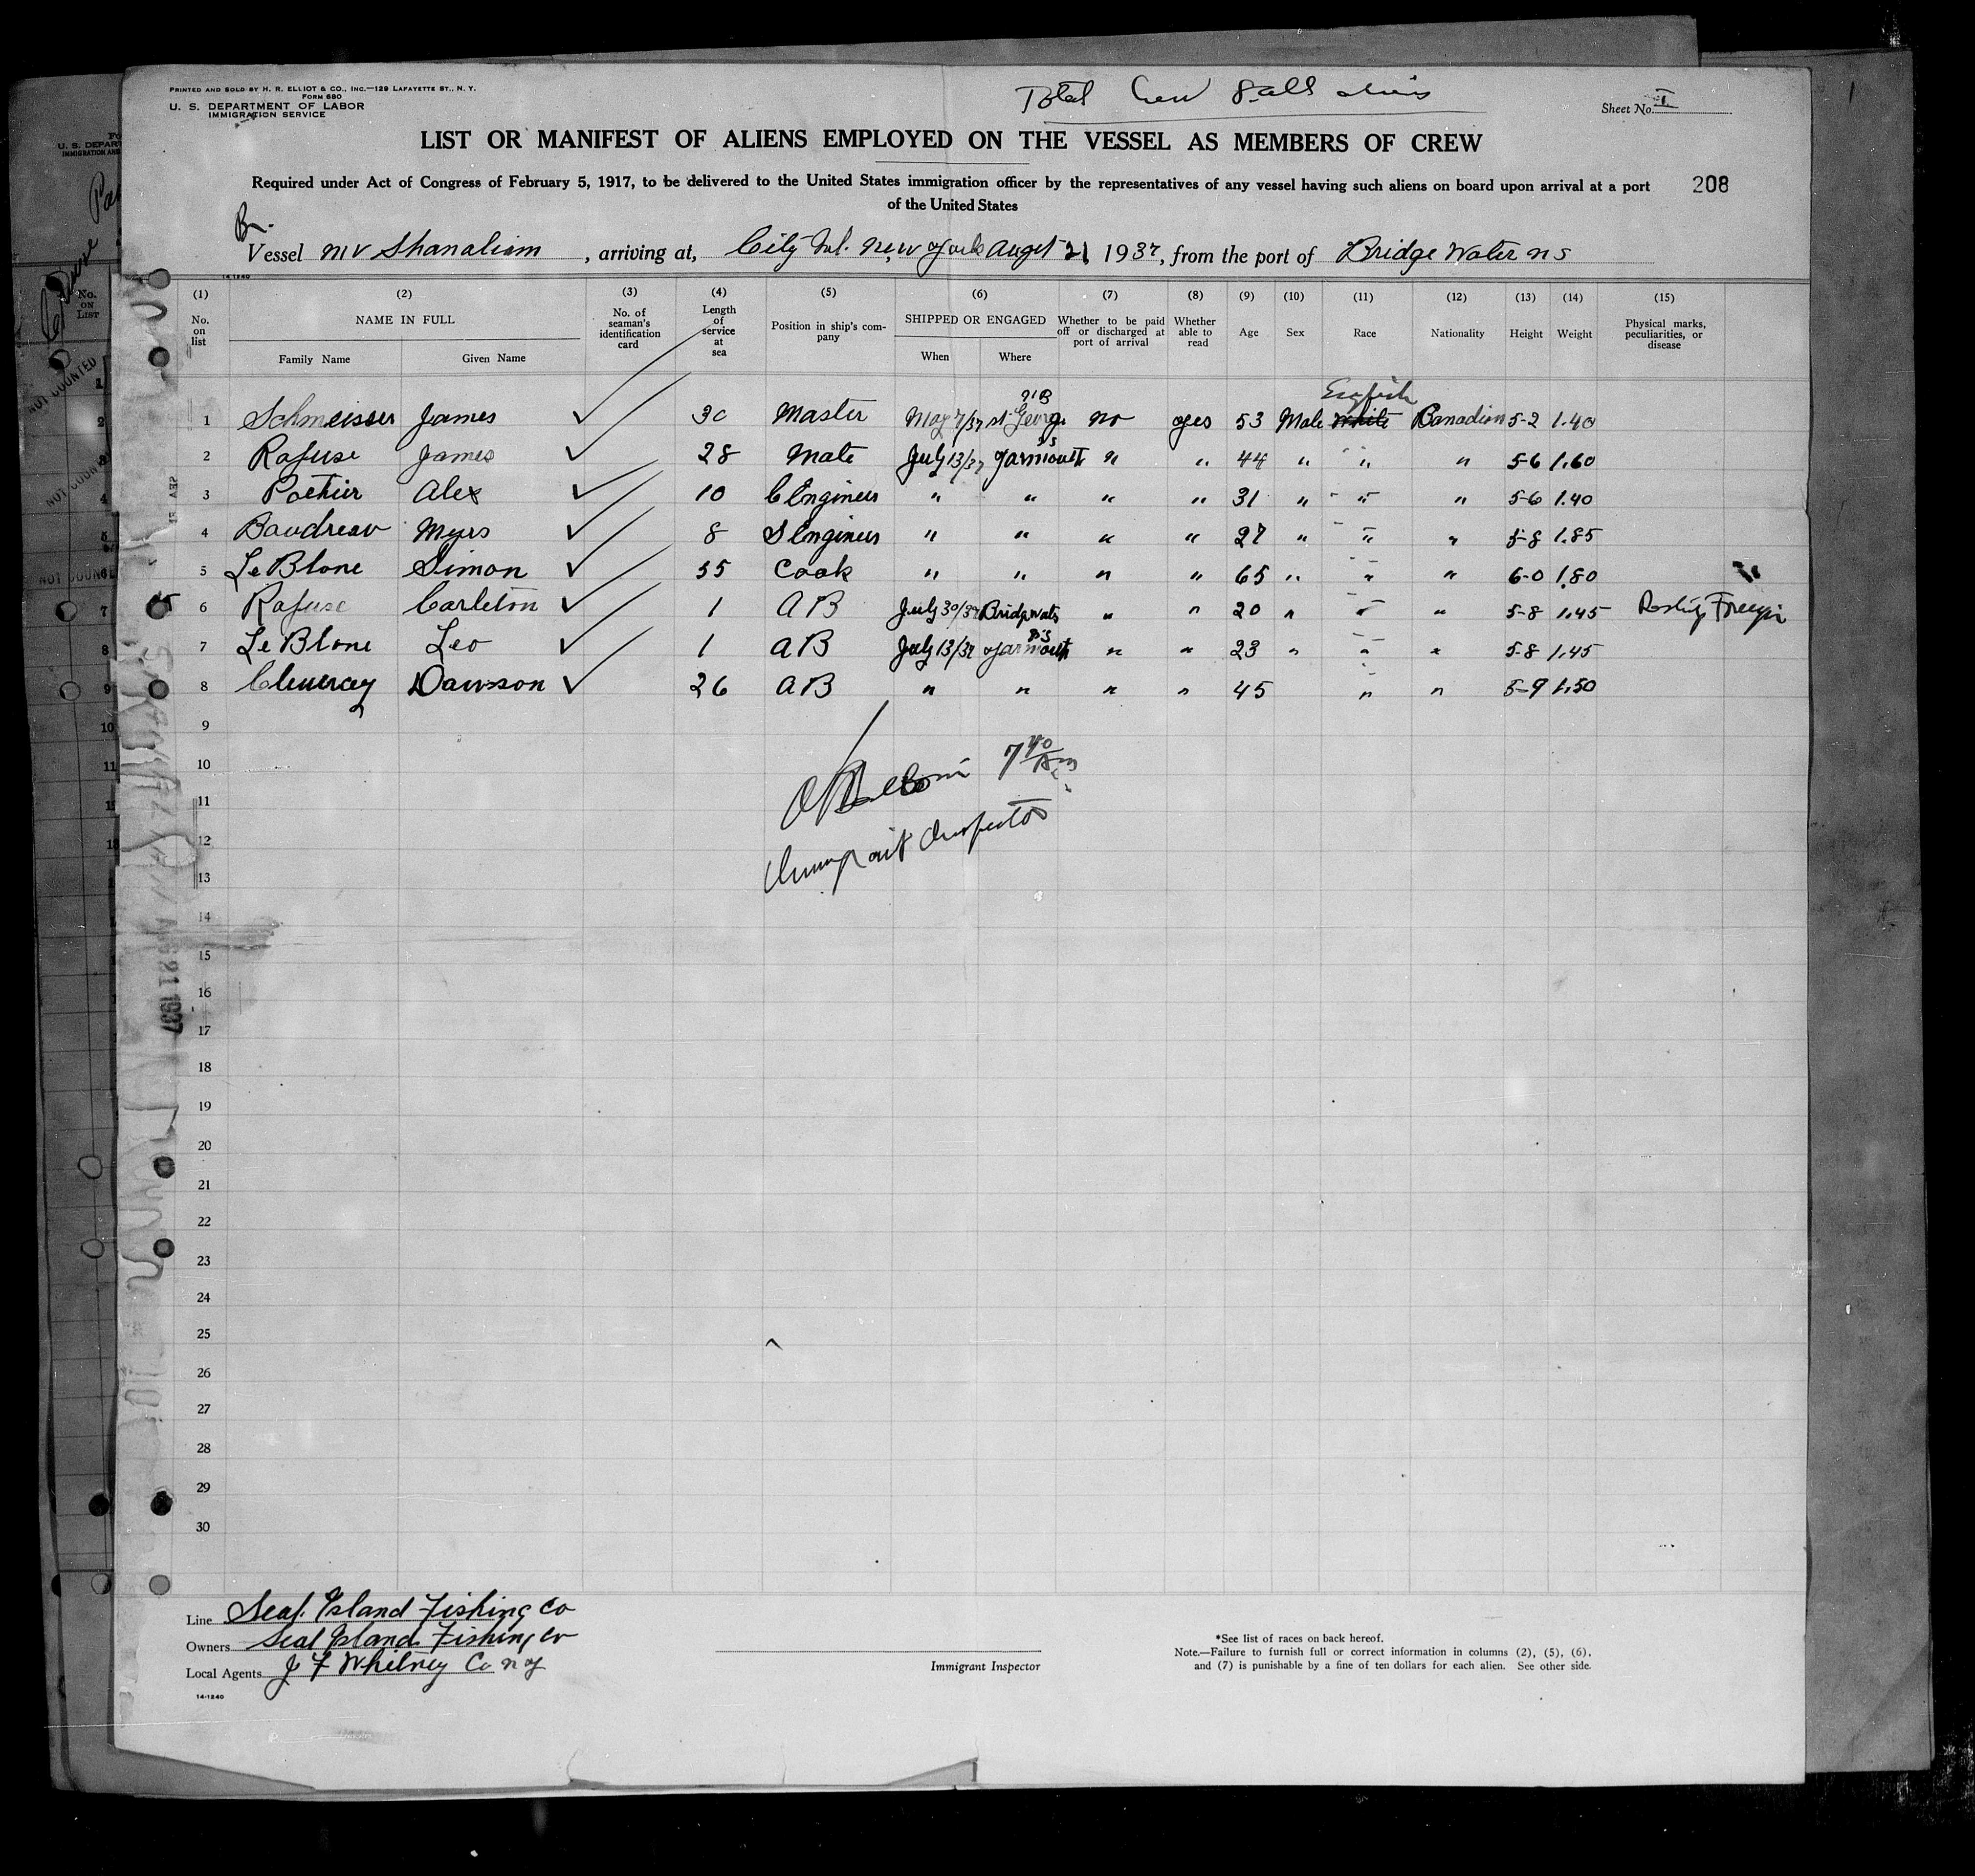 PRINTED AND SOLD BY H. R. ELLIOT & CO., INC.—129 LAFAYETTE ST., N. Y.
FORM 680
U. S. DEPARTMENT OF LABOR
IMMIGRATION SERVICE
Total Crew 8 all
Sheet No. I
LIST OR MANIFEST OF ALIENS EMPLOYED ON THE VESSEL AS MEMBERS OF CREW
Required under Act of Congress of February 5, 1917, to be delivered to the United States immigration officer by the representatives of any vessel having such aliens on board upon arrival at a port
of the United States
208
Br.
Vessel MV Shanalian, arriving at, City Isl. New York Augst 21, 1937, from the port of Bridge Water NS
14-1240
(1) (2) (3) (4) (5) (6) (7) (8) (9) (10) (11) (12) (13) (14) (15)
No. on list NAME IN FULL Family Name Given Name No. of seaman's identification card Length of service at sea Position in ship's company SHIPPED OR ENGAGED When Where Whether to be paid off or discharged at port of arrival Whether able to read Age Sex Race Nationality Height Weight Physical marks, peculiarities, or disease
English
1 Schmeisser James ✓ 30 Master May 7/37 St George NB no yes 53 Male White Canadian 5-2 1.40
2 Rafuse James ✓ 28 Mate July 13/37 Yarmouth NS " " 44 " " " 5-6 1.60
3 Pothier Alex ✓ 10 C Engineer " " " " 31 " " " 5-6 1.40
4 Baudreau Myrs ✓ 8 S Engineer " " " " 27 " " " 5-8 1.85
5 Le Blone Simon ✓ 35 Cook " " " " 65 " " " 6-0 1.80
6 Rafuse Carleton ✓ 1 AB July 30/37 Bridgwater " " 20 " " " 5-8 1.45
7 Le Blone Leo ✓ 1 AB July 13/37 Yarmouth NS " " 23 " " " 5-8 1.45
8 Dawson ✓ 26 AB " " " " 45 " " 5-9 1.50
9
10 7 40
11
12 Inspector
13
14
15
16
17
18
19
20
21
22
23
24
25
26
27
28
29
30
AUG 21 1937
Line Seal Island Fishing Co
Owners Seal Island Fishing Co
Local Agents J F Whitney Co NY
14-1240
Immigrant Inspector
*See list of races on back hereof.
Note.—Failure to furnish full or correct information in columns (2), (5), (6),
and (7) is punishable by a fine of ten dollars for each alien. See other side.